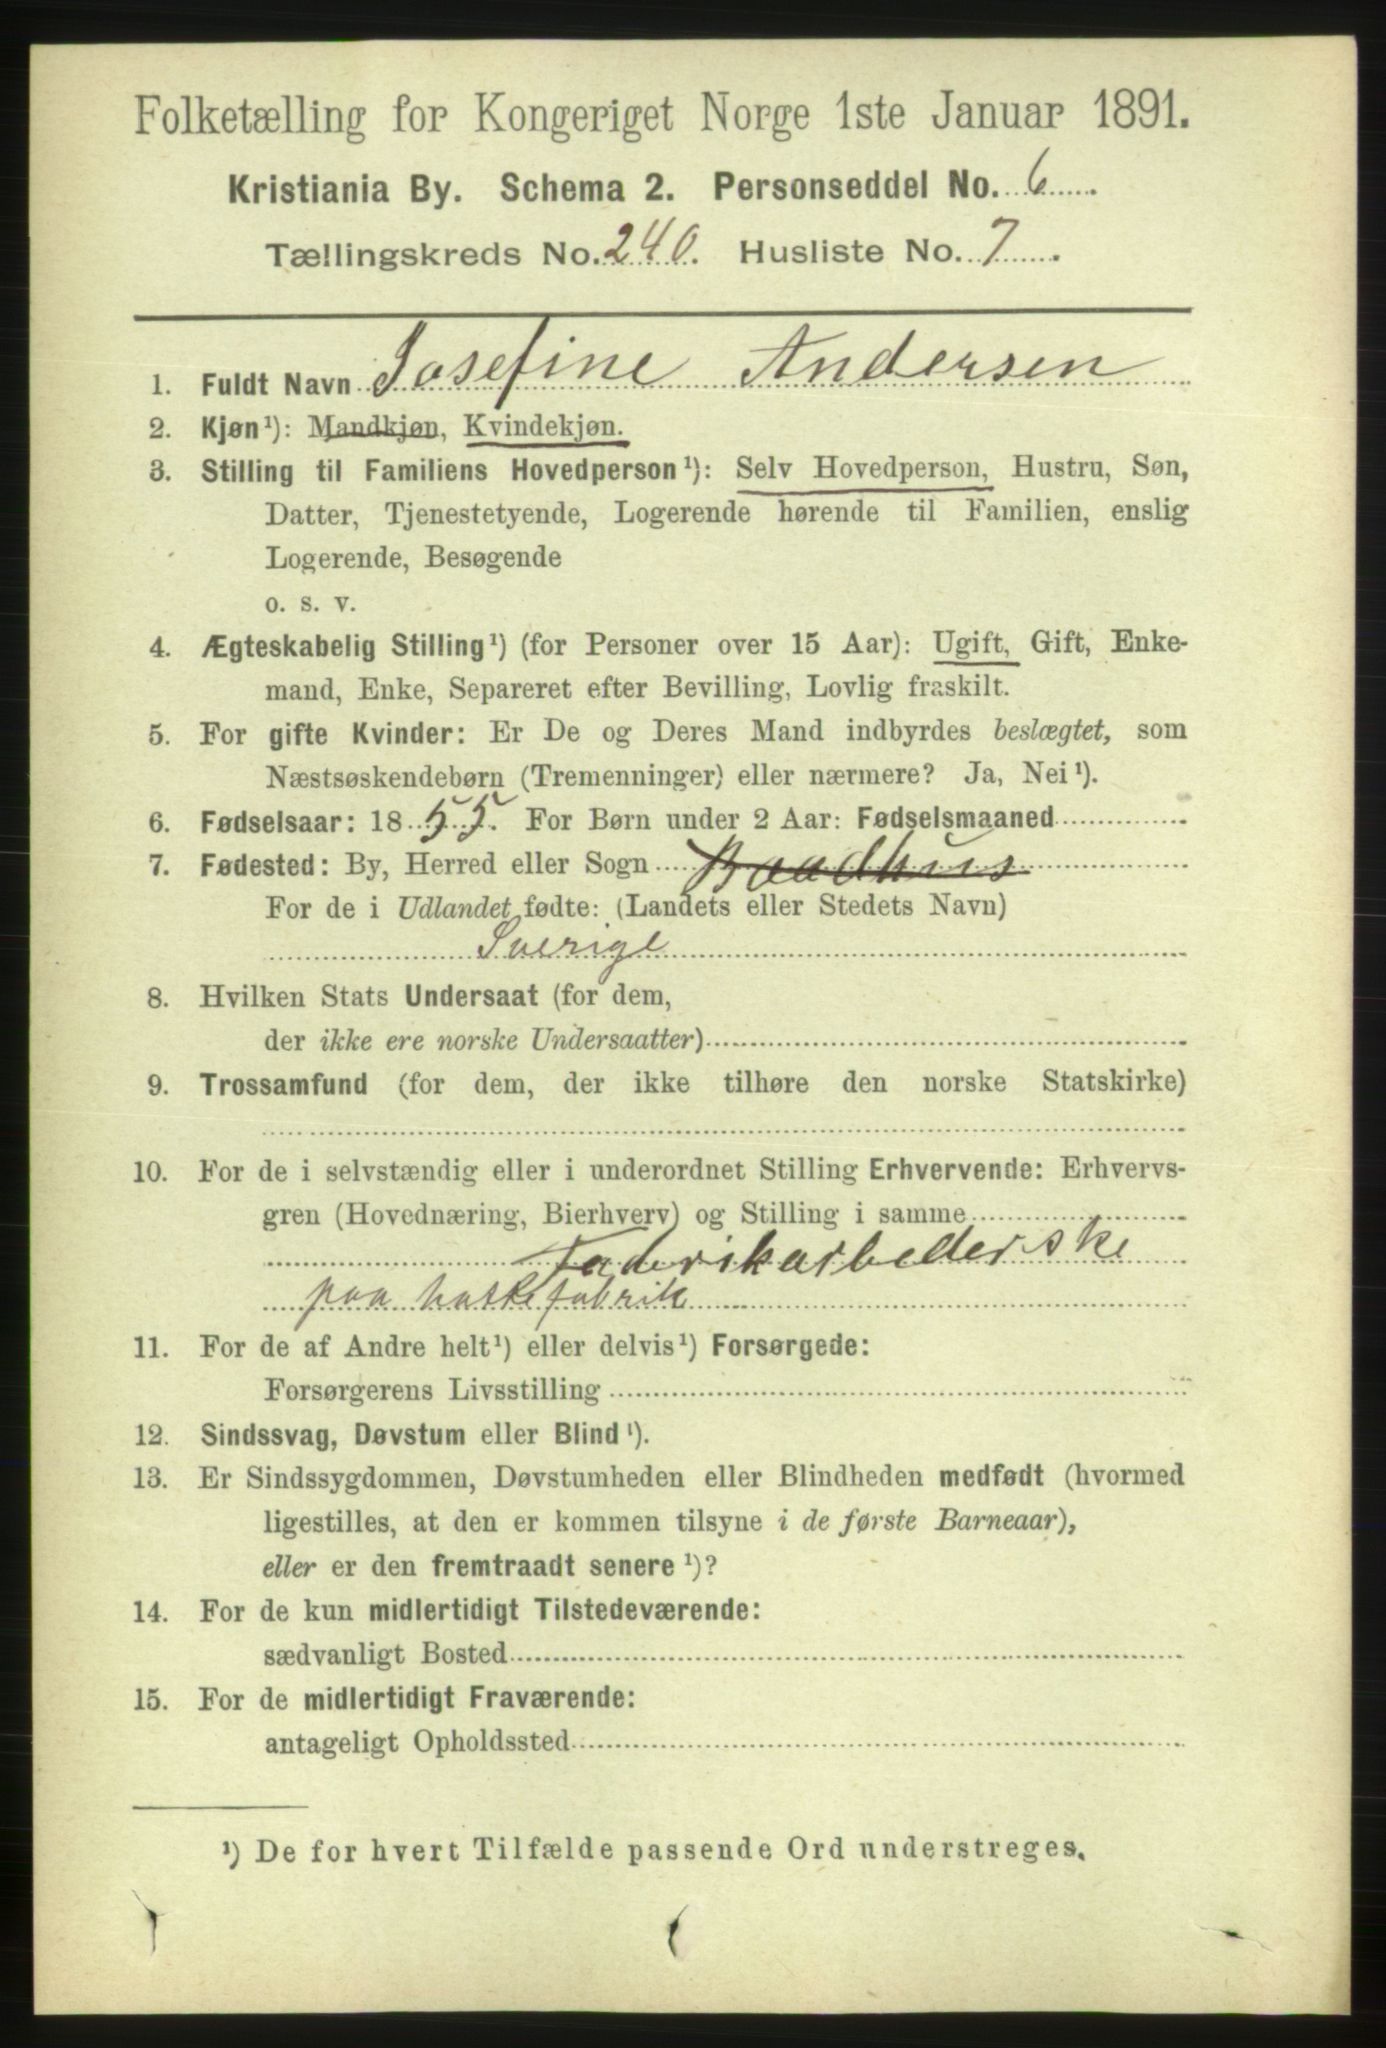 Folketælling for Kongeriget Norge 1ste Januar 1891.
Kristiania By. Schema 2. Personseddel No. 6.
Tællingskreds No. 240. Husliste No. 7.
1. Fuldt Navn Josefine Andersen
2. Kjøn¹): Mandkjøn, Kvindekjøn.
3. Stilling til Familiens Hovedperson¹): Selv Hovedperson, Hustru, Søn,
Datter, Tjenestetyende, Logerende hørende til Familien, enslig
Logerende, Besøgende
o. s. v.
4. Ægteskabelig Stilling¹) (for Personer over 15 Aar): Ugift, Gift, Enke-
mand, Enke, Separeret efter Bevilling, Lovlig fraskilt.
5. For gifte Kvinder: Er De og Deres Mand indbyrdes beslægtet, som
Næstsøskendebørn (Tremenninger) eller nærmere? Ja, Nei¹).
6. Fødselsaar: 1855. For Børn under 2 Aar: Fødselsmaaned
7. Fødested: By, Herred eller Sogn Baadhus
For de i Udlandet fødte: (Landets eller Stedets Navn)
Sverige
8. Hvilken Stats Undersaat (for dem,
der ikke ere norske Undersaatter)
9. Trossamfund (for dem, der ikke tilhøre den norske Statskirke)
10. For de i selvstændig eller i underordnet Stilling Erhvervende: Erhvervs-
gren (Hovednæring, Bierhverv) og Stilling i samme
Faberikarbeiderske
paa fabrik
11. For de af Andre helt¹) eller delvis¹) Forsørgede:
Forsørgerens Livsstilling
12. Sindssvag, Døvstum eller Blind¹).
13. Er Sindssygdommen, Døvstumheden eller Blindheden medfødt (hvormed
ligestilles, at den er kommen tilsyne i de første Barneaar),
eller er den fremtraadt senere¹)?
14. For de kun midlertidigt Tilstedeværende:
sædvanligt Bosted
15. For de midlertidigt Fraværende:
antageligt Opholdssted
¹) De for hvert Tilfælde passende Ord understreges.